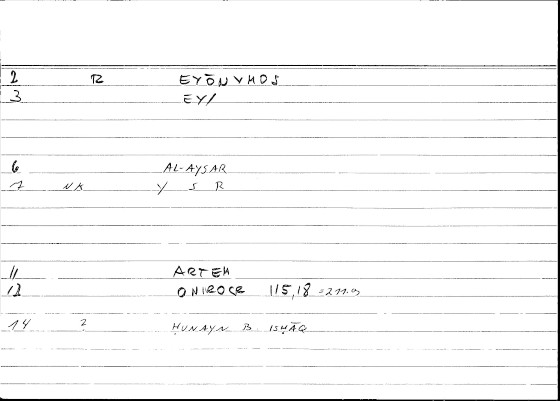 2 R EYŌNYMOS
3 EY/
6 AL-AYSAR
7 NK Y S R
11 ARTEM
12 ONIROCR 115,18 =211.9
14 ? ḤUNAYN B. ISḤĀQ